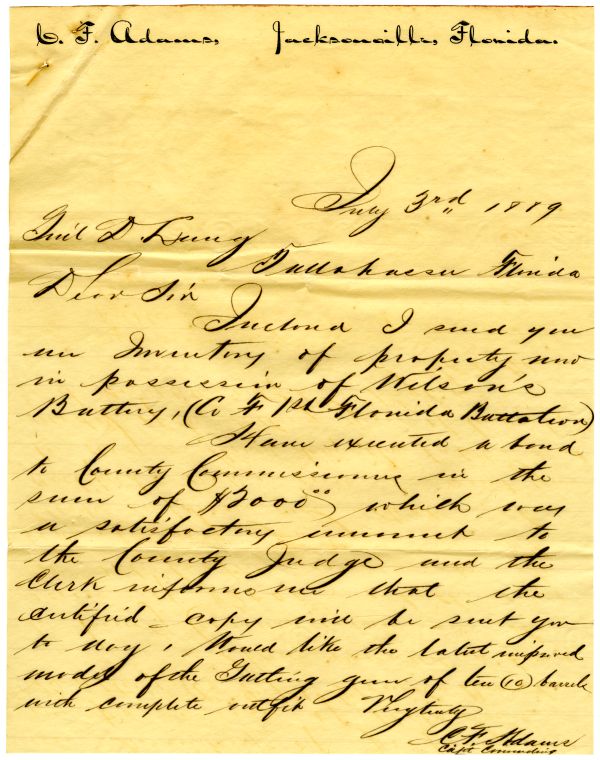 C. F. Adams, Jacksonville, Florida.
July 3rd 1889
Gen'l D. Lang
Tallahassee Florida
Dear Sir
Inclosed I send you
an Inventory of property now
in possession of Wilson's
Battery, (Co F 1st Florida Battalion)
Have executed a bond
to County Commissioners in the
sum of $2000.00 which was
a satisfactory amount to
the County Judge and the
Clerk informs me that the
certified copy will be sent you
to day, Would like the latest improved
model of the Gatling gun of ten (10) barrels
with complete outfit Very truly
C. F. Adams
Capt Commdg